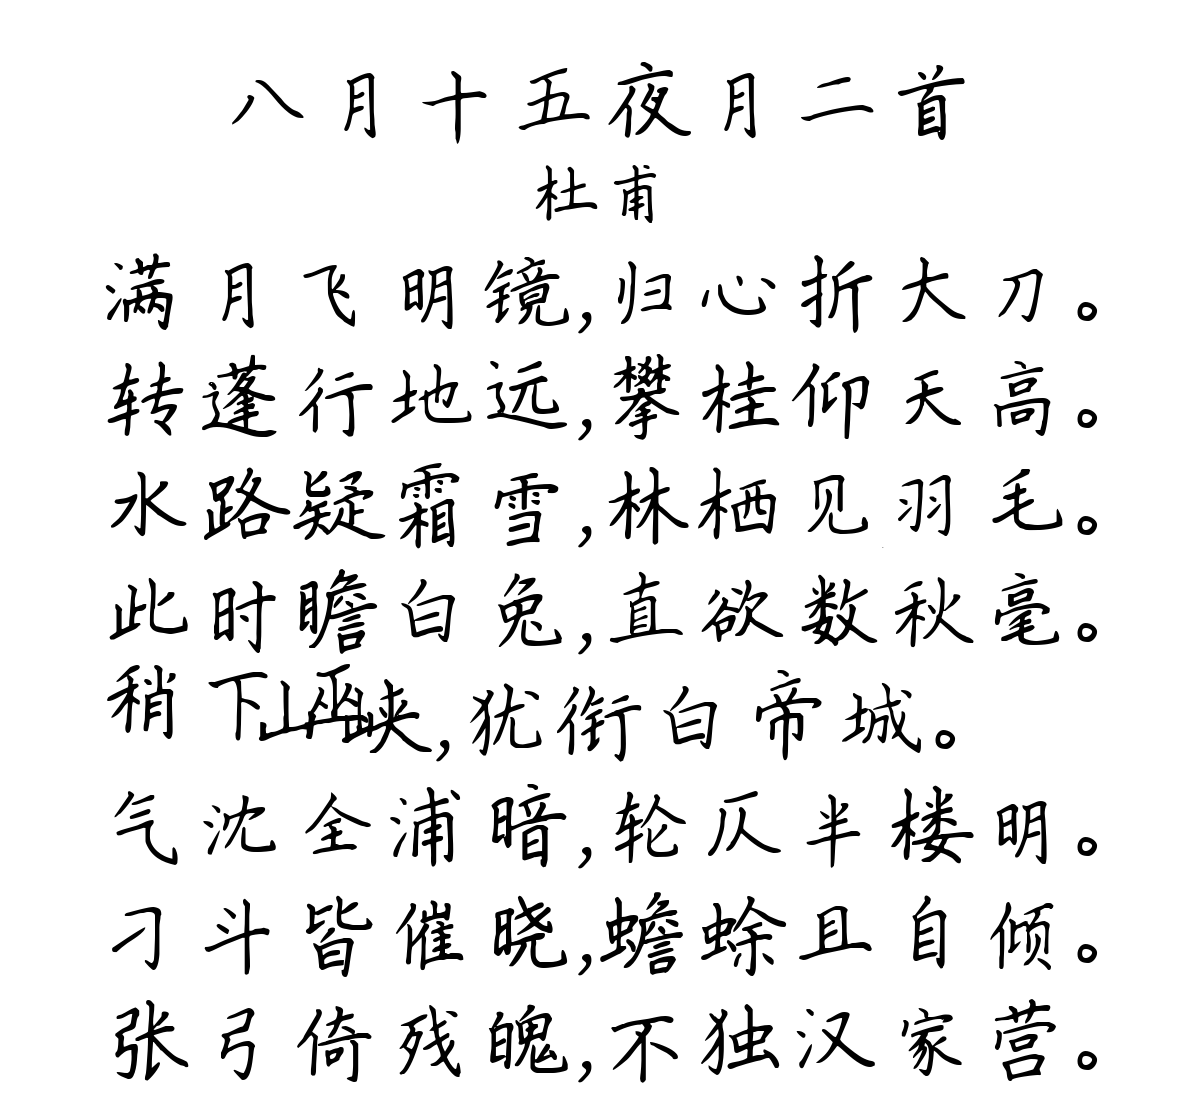 八月十五夜月二首
杜甫
满月飞明镜,归心折大刀。
转蓬行地远,攀桂仰天高。
水路疑霜雪,林栖见羽毛。
此时瞻白兔,直欲数秋毫。
稍下巫山峡,犹衔白帝城。
气沈全浦暗,轮仄半楼明。
刁斗皆催晓,蟾蜍且自倾。
张弓倚残魄,不独汉家营。